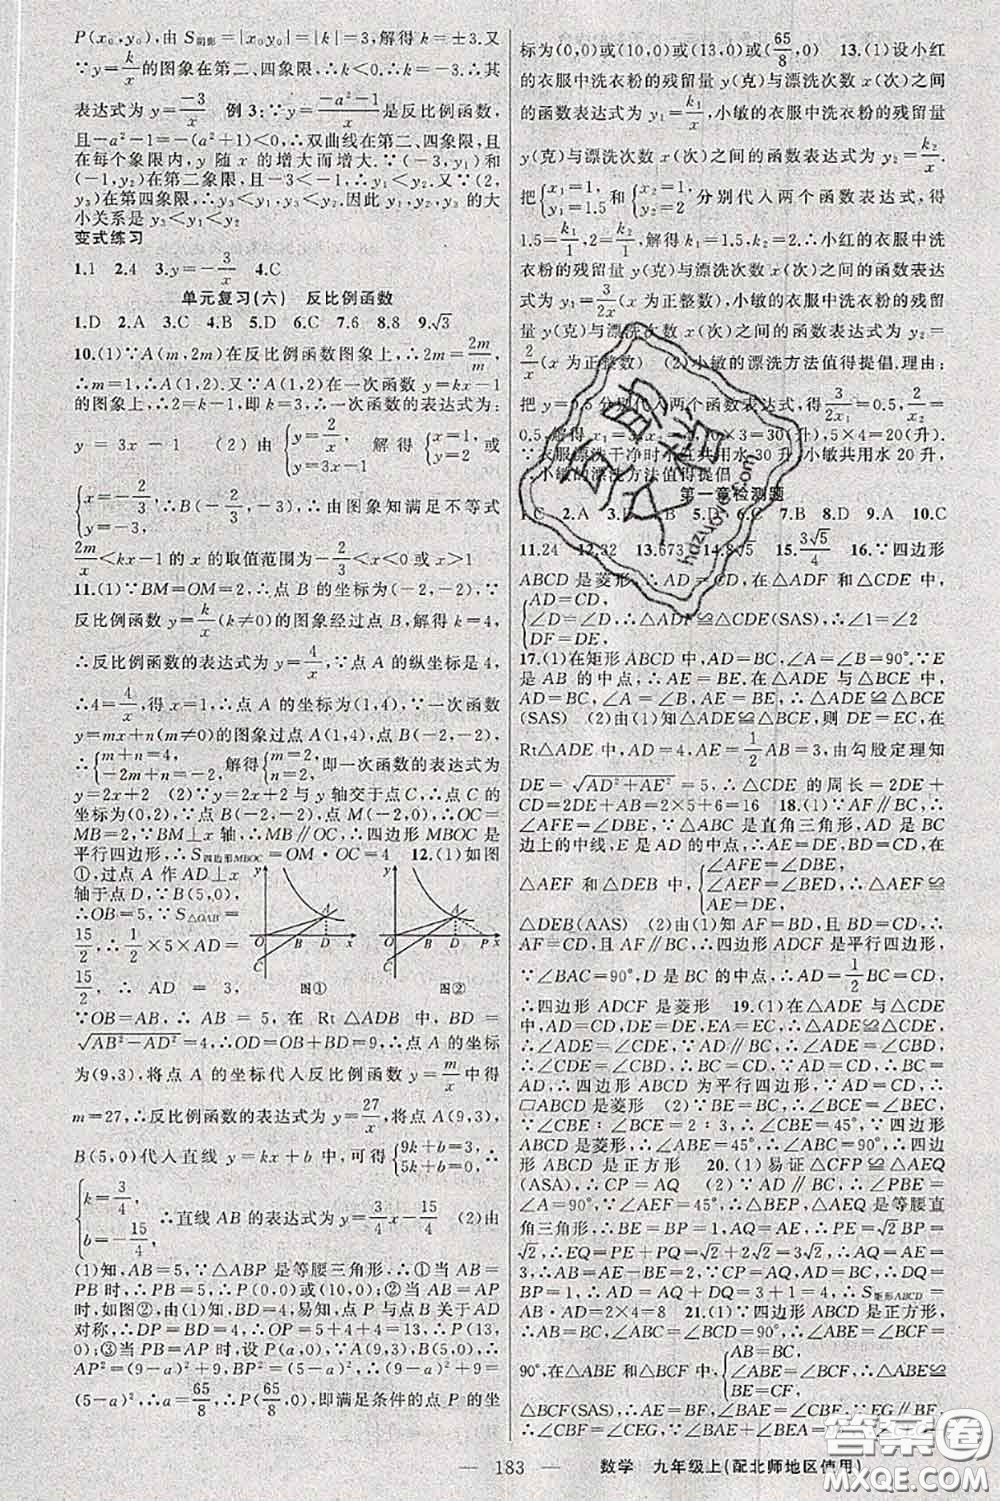 P(x₀,y₀),由 S阴影=|x₀y₀|=|k|=3,解得 k=±3.又
∵y=k/x的图象在第二、四象限,∴k<0,∴k=-3.∴其
表达式为 y=-3/x 例 3:∵y=(-a²-1)/x是反比例函数,
且-a²-1=-(a²+1)<0,∴双曲线在第二、四象限,且
在每个象限内,y 随 x 的增大而增大.∵(-3,y₁)和
(-1,y₂)在第二象限,且-3<-1,∴y₁<y₂.又∵(2,
y₃)在第四象限,∴y₃<y₁,y₃<y₂.因此 y₁,y₂,y₃ 的大
小关系是 y₃<y₁<y₂
变式练习
1.1 2.4 3.y=-3/x 4.C
单元复习(六) 反比例函数
1.D 2.A 3.C 4.B 5.D 6.C 7.6 8.8 9.√3
10.(1)∵A(m,2m)在反比例函数图象上,∴2m=2m/m
∴m=1,∴A(1,2).又∵A(1,2)在一次函数 y=kx-1
的图象上,∴2=k-1,即 k=3,∴一次函数的表达式为:
y=3x-1 (2)由{y=2/x, y=3x-1 解得{x=1, y=2 或
{x=-2/3, y=-3, ∴B(-2/3,-3),∴由图象知满足不等式
2m/x<kx-1 的 x 的取值范围为-2/3<x<0 或 x>1
11.(1)∵BM=OM=2,∴点 B 的坐标为(-2,-2),∵
反比例函数 y=k/x(k≠0)的图象经过点 B,解得 k=4,
∴反比例函数的表达式为 y=4/x,∵点 A 的纵坐标是 4,
∴4=4/x,得 x=1,∴点 A 的坐标为(1,4),∵一次函数
y=mx+n(m≠0)的图象过点 A(1,4),点 B(-2,-2),
∴{m+n=4, -2m+n=-2, 解得{m=2, n=2. 即一次函数的表达式为
y=2x+2 (2)∵y=2x+2 与 y 轴交于点 C,∴点 C 的
坐标为(0,2),∵点 B(-2,-2),点 M(-2,0),∴OC=
MB=2,∵BM⊥x 轴,∴MB∥OC,∴四边形 MBOC 是
平行四边形,∴S四边形MBOC=OM·OC=4 12.(1)如图
①,过点 A 作 AD⊥x
轴于点 D,∵B(5,0),
∴OB=5,∵S△OAB=
15/2,∴1/2×5×AD=
15/2,∴AD=3,
y A O B D x C 图①
y A O B D P x C 图②
∵OB=AB,∴AB=5,在 Rt△ADB 中,BD=
√(AB²-AD²)=4,∴OD=OB+BD=9,∴点 A 的坐标
为(9,3),将点 A 的坐标代人反比例函数 y=m/x 中得
m=27,∴反比例函数的表达式为 y=27/x,将点 A(9,3),
B(5,0)代入直线 y=kx+b 中,可得{9k+b=3, 5k+b=0,∴
{k=3/4, b=-15/4, ∴直线 AB 的表达式为 y=3/4x-15/4 (2)由
(1)知,AB=5,∵△ABP 是等腰三角形,∴①当 AB=
PB 时,∴PB=5,∴P(0,0)或(10,0);②当 AB=AP
时,如图②,由(1)知,BD=4,易知,点 P 与点 B 关于 AD
对称,∴DP=BD=4,∴OP=5+4+4=13,∴P(13,
0);③当 PB=AP 时,设 P(a,0),∵A(9,3),B(5,0),∴
AP²=(9-a)²+9,BP²=(5-a)²,∴(9-a)²+9=
(5-a)²,∴a=65/8,∴P(65/8,0),即满足条件的点 P 的坐
标为(0,0)或(10,0)或(13,0)或(65/8,0) 13.(1)设小红
的衣服中洗衣粉的残留量 y(克)与漂洗次数 x(次)之间
的函数表达式为 y₁=k₁/x,小敏的衣服中洗衣粉的残留量
y(克)与漂洗次数 x(次)之间的函数表达式为 y₂=k₂/x.
把{x₁=1, y₁=1.5 和{x₂=1, y₂=2 分别代入两个函数表达式,得
1.5=k₁/1,2=k₂/1,解得 k₁=1.5,k₂=2.∴小红的衣服中洗
衣粉的残留量 y(克)与漂洗次数 x(次)之间的函数表达
式为 y₁=3/2x(x 为正整数),小敏的衣服中洗衣粉的残留
量 y(克)与漂洗次数 x(次)之间的函数表达式为 y₂=
2/x(x 为正整数) (2)小敏的漂洗方法值得提倡.理由:
把 y=0.5 分别代入两个函数表达式,得3/2x₁=0.5,2/x₂=
0.5,解得 x₁=3,x₂=4,10×3=30(升),5×4=20(升).
∵衣服漂洗干净时小红共用水 30 升,小敏共用水 20 升,
小敏的漂洗方法值得提倡
第一章检测题
1.C 2.A 3.D 4.B 5.D 6.C 7.B 8.D 9.A 10.C
11.24 12.32 13. 14.8√5 15.3√5/4 16.∵四边形
ABCD 是菱形,∴AD=CD,在△ADF 和△CDE 中,
{AD=CD, ∠D=∠D, DF=DE, ∴△ADF≌△CDE(SAS),∴∠1=∠2
17.(1)在矩形 ABCD 中,AD=BC,∠A=∠B=90°.∵E
是 AB 的中点,∴AE=BE.在△ADE 与△BCE 中,
AD=BC,∠A=∠B,AE=BE,∴△ADE≌△BCE
(SAS) (2)由(1)知△ADE≌△BCE,则 DE=EC,在
Rt△ADE 中,AD=4,AE=1/2AB=3,由勾股定理知
DE=√(AD²+AE²)=5,∴△CDE 的周长=2DE+
CD=2DE+AB=2×5+6=16 18.(1)∵AF∥BC,∴
∠AFE=∠DBE,∵△ABC 是直角三角形,AD 是 BC
边上的中线,E 是 AD 的中点,∴AE=DE,BD=CD,在
△AEF 和△DEB 中,{∠AFE=∠DBE, ∠AEF=∠DEB, AE=DE, ∴△AEF≌
△DEB(AAS) (2)由(1)知 AF=BD,且 BD=CD,
∴AF=CD,且 AF∥BC,∴四边形 ADCF 是平行四边形,
∵∠BAC=90°,D 是 BC 的中点,∴AD=1/2BC=CD,
∴四边形 ADCF 是菱形 19.(1)在△ADE 与△CDE
中,AD=CD,DE=DE,EA=EC,∴△ADE≌△CDE,
∴∠ADE=∠CDE,∵AD∥BC,∴∠ADE=∠CBD,
∴∠CDE=∠CBD,∴BC=CD,∵AD=CD,∴BC=
AD,∴四边形 ABCD 为平行四边形,∵AD=CD,∴
▱ABCD 是菱形 (2)∵BE=BC,∴∠BCE=∠BEC,
∵∠CBE:∠BCE=2:3,∴∠CBE=45°,∵四边形
ABCD 是菱形,∴∠ABE=45°,∴∠ABC=90°,∴四边
形 ABCD 是正方形 20.(1)易证△CFP≌△AEQ
(ASA),∴CP=AQ (2)∵AD∥BC,∴∠PBE=
∠A=90°,∵∠AEF=45°,∴△BEP,△AEQ 是等腰直
角三角形,∴BE=BP=1,AQ=AE,∴PE=√2BP=
√2,∴EQ=PE+PQ=√2+2√2=3√2,∴AQ=AE=
3,∴AB=AE-BE=2,∵CP=AQ,AD=BC,∴DQ=
BP=1,∴AD=AQ+DQ=3+1=4,∴S矩形ABCD=
AB·AD=2×4=8 21.(1)∵四边形 ABCD 是正方形,
∴AB=BC,∠ABC=∠BCD=90°,∴∠ABE=∠BCF=
90°,在△ABE 和△BCF 中,{AB=BC, ∠ABE=∠BCF, BE=CF, ∴△ABE≌
△BCF(SAS),∴AE=BF,∵BF∥EG,BF=EG,
∴∠CBF=∠CEG,∵∠BAE+∠BEA=
— 183 — 数学 九年级上(配北师地区使用)
作业帮
huzuoye.com
答案圈
MXQE.COM